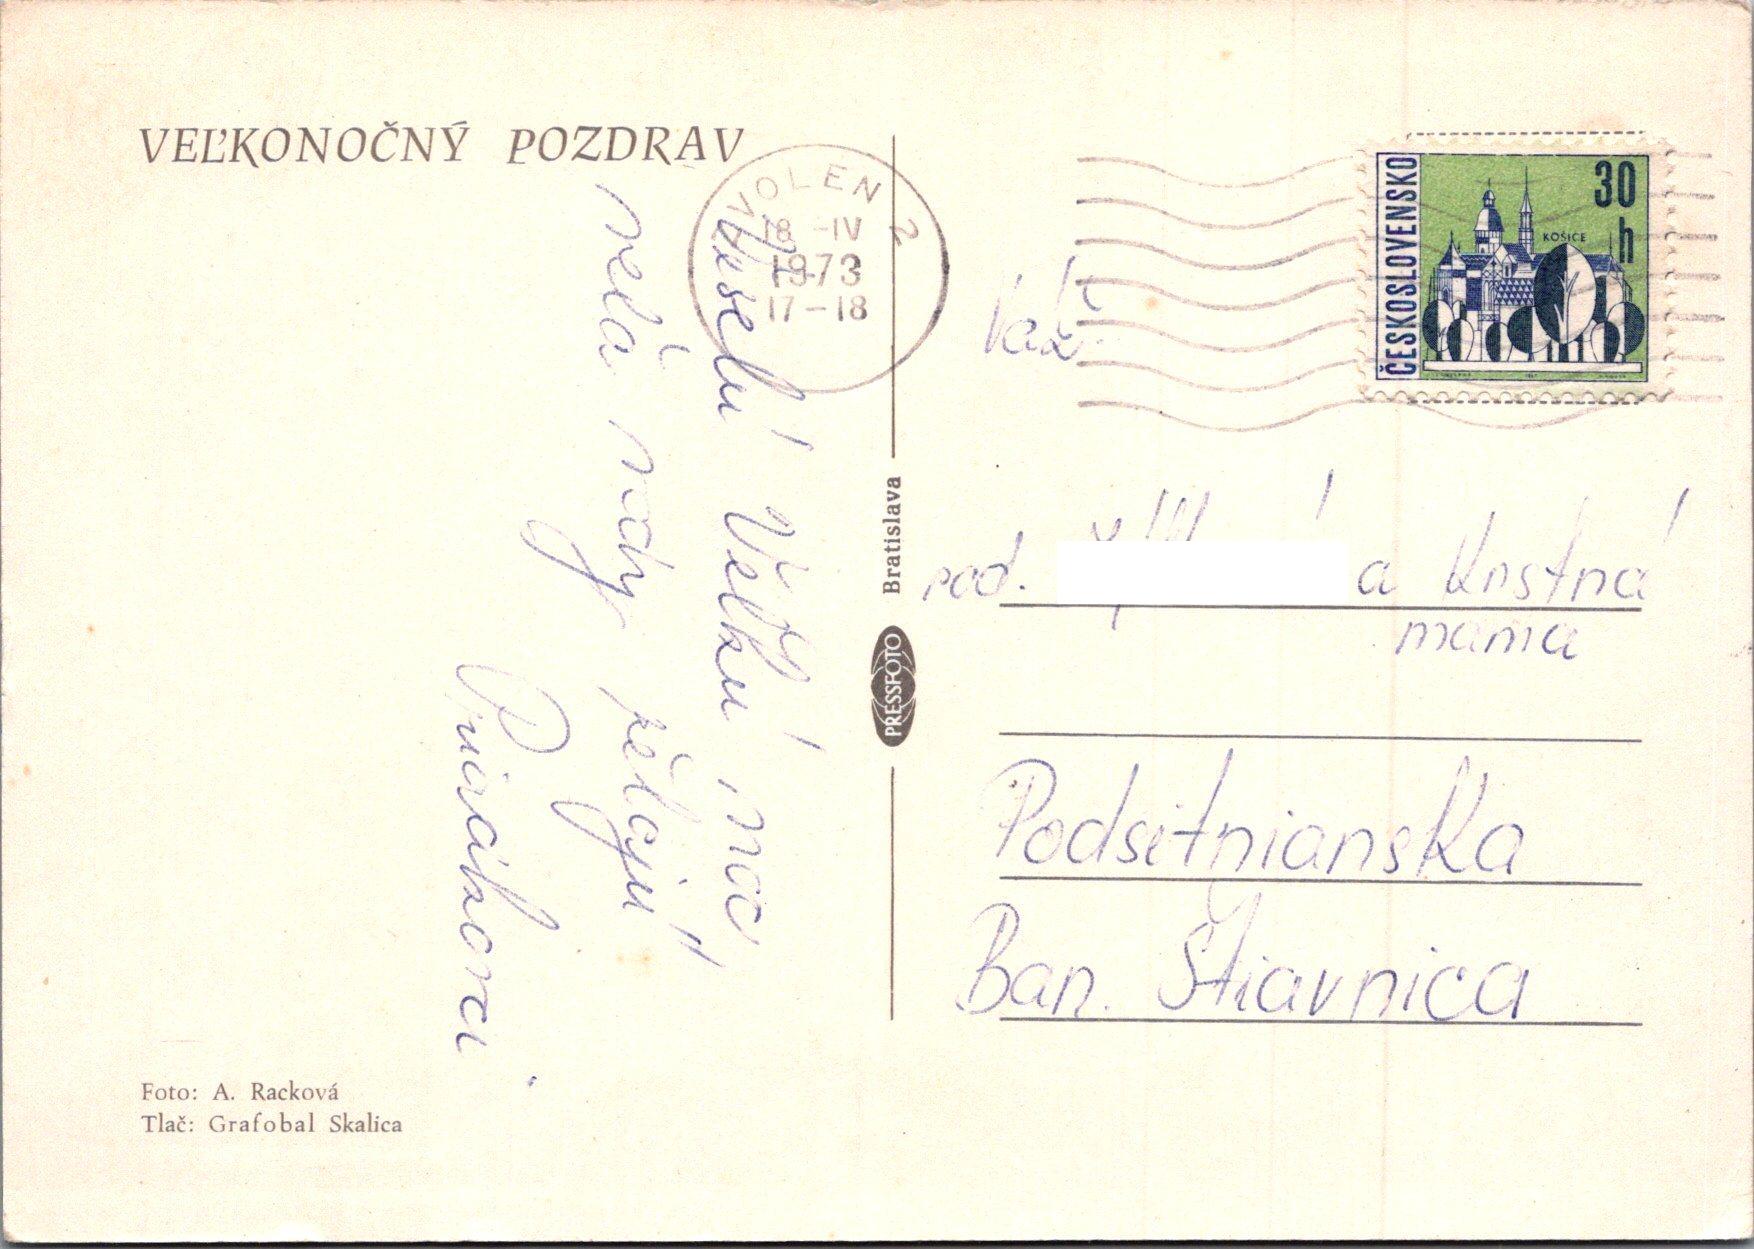 VEĽKONOČNÝ POZDRAV
Veselú Veľkú noc
veľa vody
želajú
ZVOLEN 2
18 -IV
1973
17-18
ČESKOSLOVENSKO
30
h
KOŠICE
Váž.
rod. a Krstná
mama
Podsitnianska
Ban. Štiavnica
Bratislava
PRESSFOTO
Foto: A. Racková
Tlač: Grafobal Skalica